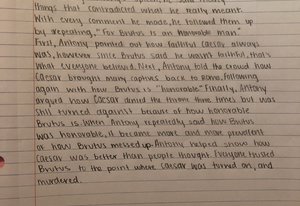 things that contradicted what he really meant.
With every comment he made, he followed them up
by repeating, "For Brutus is an honorable man."
First, Antony pointed out how faithful Caesar always
was, however since Brutus said he wasn't faithful, that's
what everyone believed. Next, Antony told the crowd how
Caesar brought many captives back to Rome, following
again with how Brutus is "honorable" Finally, Antony
argued how Caesar denied the throne three times but was
still turned against because of how honorable
Brutus is. When Antony repeatedly said how Brutus
was honorable, it became more and more prevalent
of how Brutus messed up. Antony helped show how
Caesar was better than people thought. Everyone turned
Brutus to the point where Caesar was turned on, and
murdered.